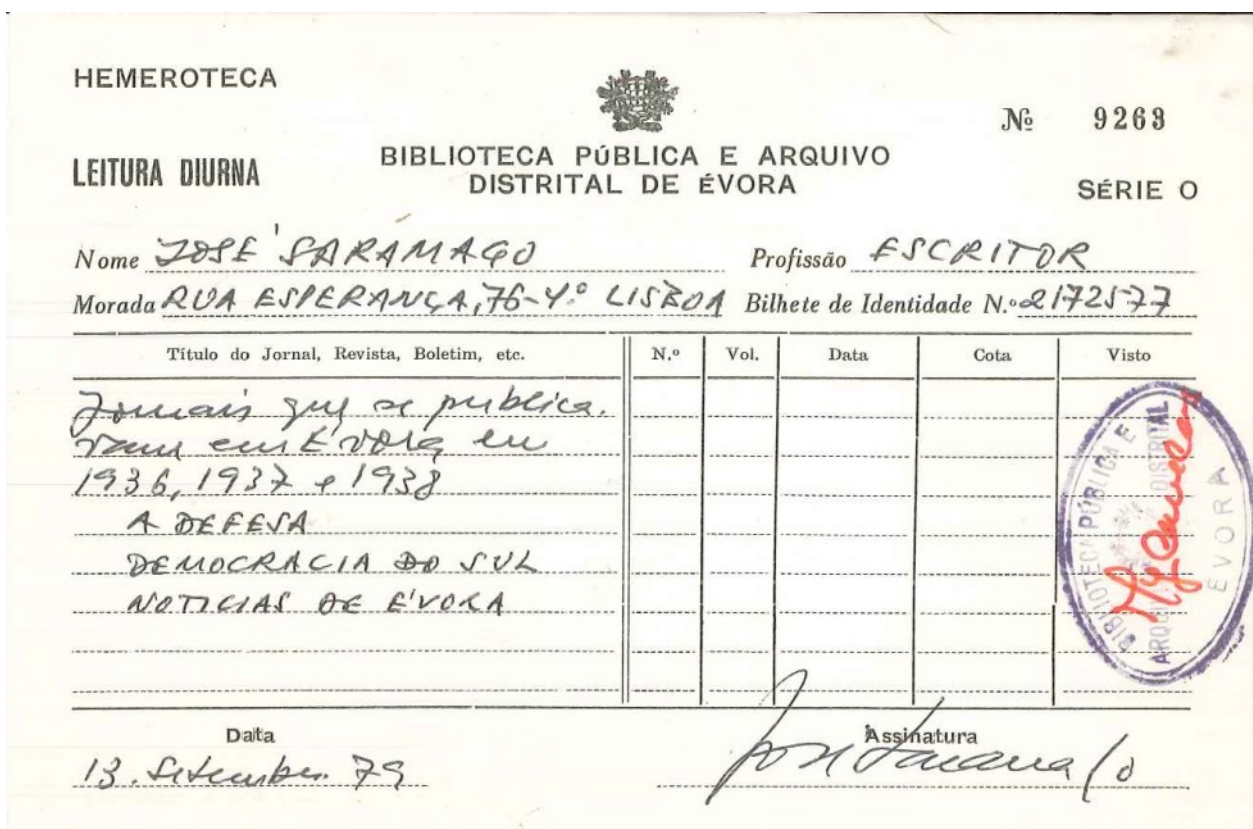 HEMEROTECA
Nº 9263
LEITURA DIURNA
BIBLIOTECA PÚBLICA E ARQUIVO
DISTRITAL DE ÉVORA
SÉRIE O
Nome JOSÉ SARAMAGO Profissão ESCRITOR
Morada RUA ESPERANÇA, 76-4º LISBOA Bilhete de Identidade N.º 2172577
Título do Jornal, Revista, Boletim, etc. N.º Vol. Data Cota Visto
Jornais que se publica-
vam em Évora em
1936, 1937 e 1938
A DEFESA
DEMOCRACIA DO SUL
NOTICIAS DE ÉVORA
BIBLIOTECA PÚBLICA E
ARQUIVO DISTRITAL
ÉVORA
Data Assinatura
13. Setembro. 79 José Saramago